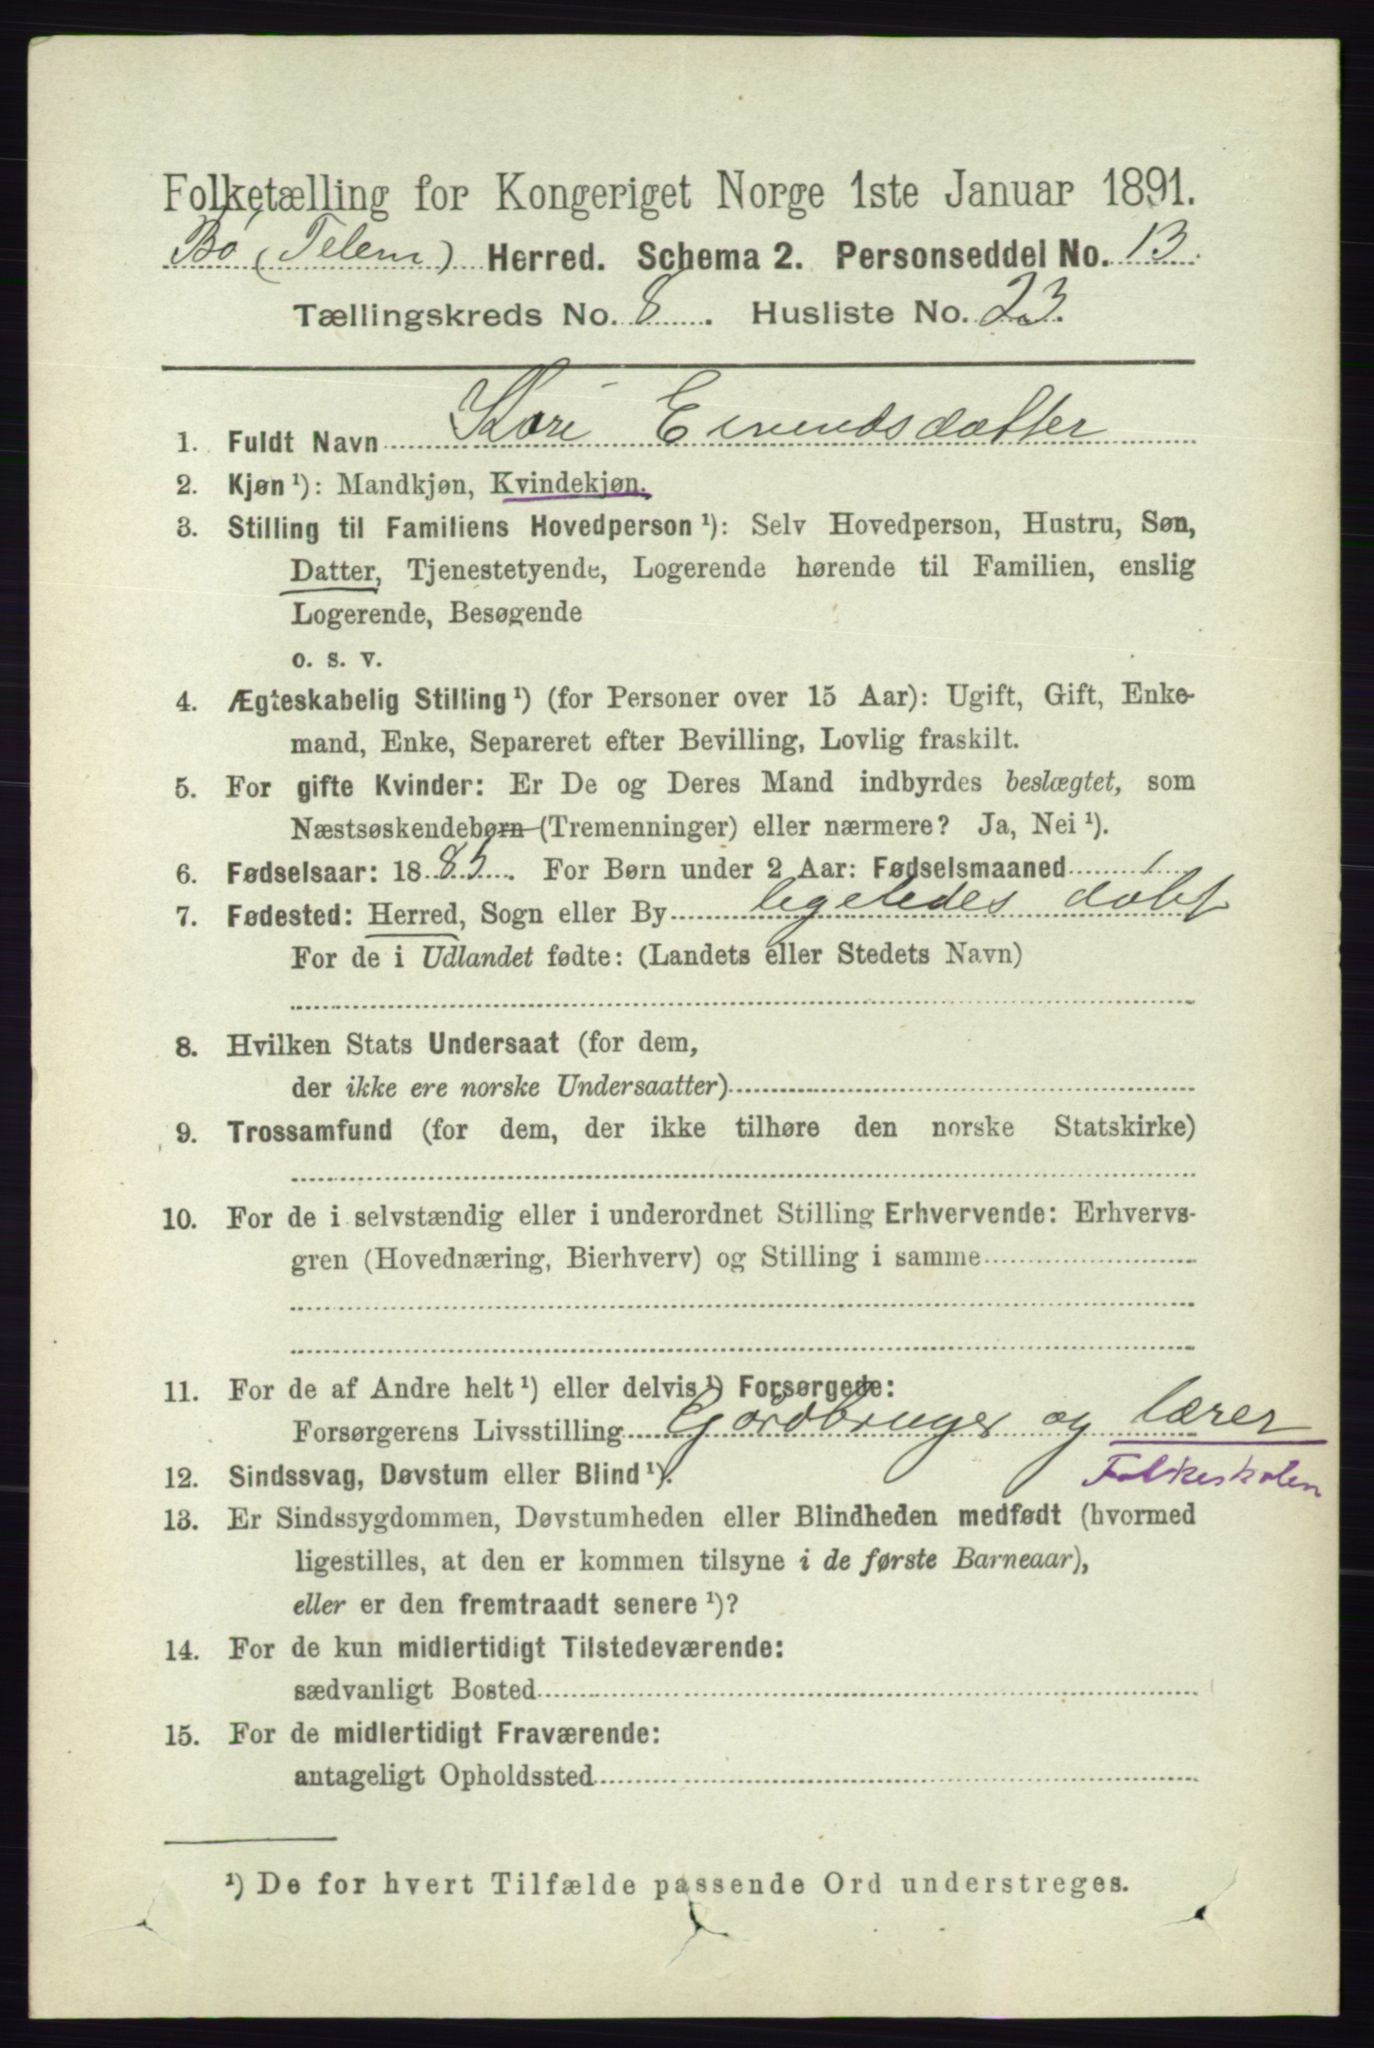 Folketælling for Kongeriget Norge 1ste Januar 1891.
Bø (Telem) Herred. Schema 2. Personseddel No. 13.
Tællingskreds No. 8. Husliste No. 23.
1. Fuldt Navn Kari Eivendsdatter
2. Kjøn ¹): Mandkjøn, Kvindekjøn.
3. Stilling til Familiens Hovedperson ¹): Selv Hovedperson, Hustru, Søn,
Datter, Tjenestetyende, Logerende hørende til Familien, enslig
Logerende, Besøgende
o. s. v.
4. Ægteskabelig Stilling ¹) (for Personer over 15 Aar): Ugift, Gift, Enke-
mand, Enke, Separeret efter Bevilling, Lovlig fraskilt.
5. For gifte Kvinder: Er De og Deres Mand indbyrdes beslægtet, som
Næstsøskendebørn (Tremenninger) eller nærmere? Ja, Nei ¹).
6. Fødselsaar: 1885. For Børn under 2 Aar: Fødselsmaaned
7. Fødested: Herred, Sogn eller By ligeledes
For de i Udlandet fødte: (Landets eller Stedets Navn)
8. Hvilken Stats Undersaat (for dem,
der ikke ere norske Undersaatter)
9. Trossamfund (for dem, der ikke tilhøre den norske Statskirke)
10. For de i selvstændig eller i underordnet Stilling Erhvervende: Erhvervs-
gren (Hovednæring, Bierhverv) og Stilling i samme
11. For de af Andre helt ¹) eller delvis ¹) Forsørgede:
Forsørgerens Livsstilling Gårdbruger og lærer
Folkeskolen
12. Sindssvag, Døvstum eller Blind ¹).
13. Er Sindssygdommen, Døvstumheden eller Blindheden medfødt (hvormed
ligestilles, at den er kommen tilsyne i de første Barneaar),
eller er den fremtraadt senere ¹)?
14. For de kun midlertidigt Tilstedeværende:
sædvanligt Bosted
15. For de midlertidigt Fraværende:
antageligt Opholdssted
¹) De for hvert Tilfælde passende Ord understreges.